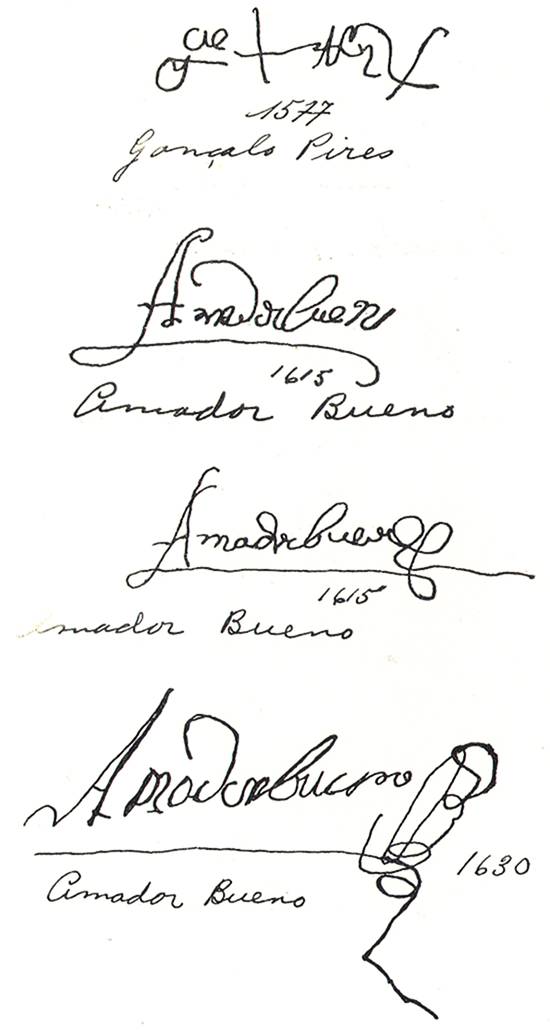 1577
Gonçalo Pires
Amador bueno
1615
Amador Bueno
Amador bueno
1615
Amador Bueno
Amador bueno
1630
Amador Bueno